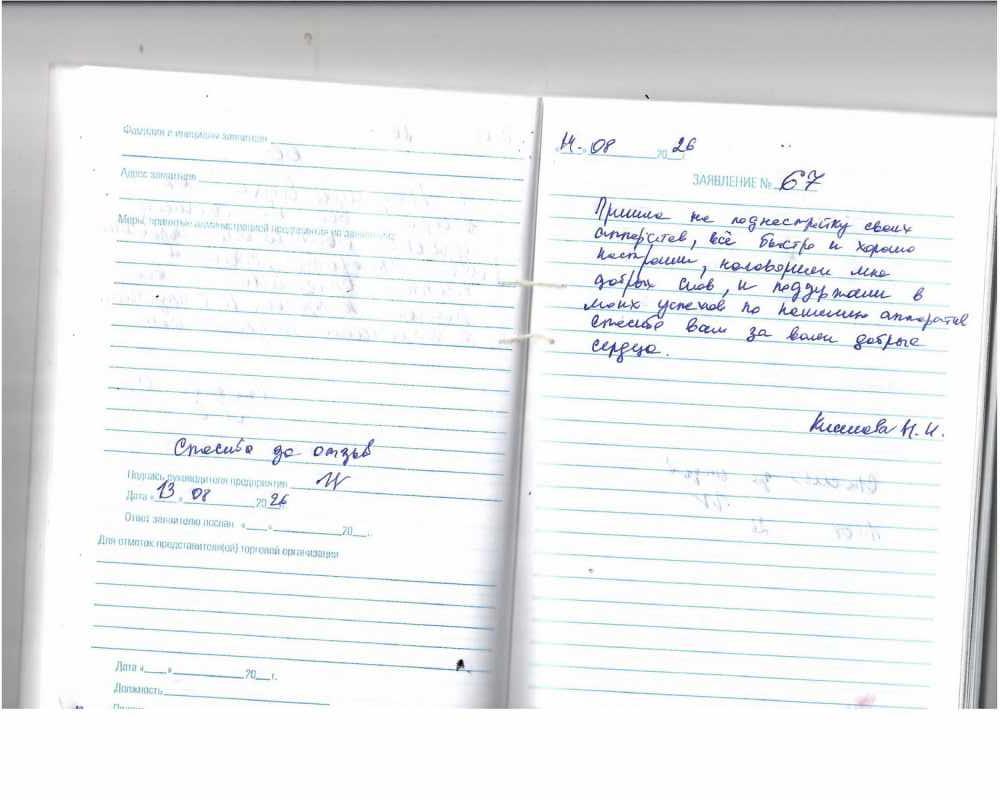 Фамилия и инициалы заявителя
Адрес заявителя
Меры, принятые администрацией предприятия по заявлению:
Спасибо за отзыв
Подпись руководителя предприятия
Дата «13» 08 2026
Ответ заявителю послан «___»___________20__г.
Для отметок представителя(ей) торговой организации
Дата «___»___________20__г.
Должность
14. 08 2026
ЗАЯВЛЕНИЕ № 67
Пришла на поднастройку своих
аппаратов, всё быстро и хорошо
настроили, наговорили мне
добрых слов, и поддержали в
моих успехов по ношению аппаратов
спасибо вам за ваши добрые
сердца.
Н.И.